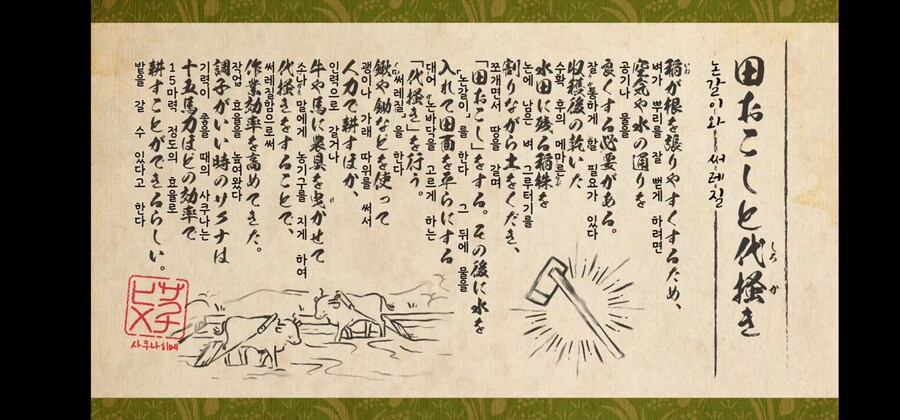 田おこしと代掻き
しろ か
논갈이와 써레질
稲が根を張りやすくするため、
벼가 뿌리를 잘 뻗게 하려면
空気や水の通りを
공기나 물을
良くする必要がある。
잘 통하게 할 필요가 있다
収穫後の乾いた
수확 후의 메마른
水田に残る稲株を
논에 남은 벼 그루터기를
割りながら土をくだき、
쪼개면서 땅을 갈며
「田おこし」をする。その後に水を
「논갈이」를 한다 그 뒤에 물을
入れて田面を平らにする
대어 논바닥을 고르게 하는
「代掻き」を行う。
「써레질」을 한다
鍬や鋤などを使って
괭이나 가래 따위를 써서
人力で耕すほか、
인력으로 갈거나
牛や馬に農具を曳かせて
소나 말에게 농기구를 지게 하여
代掻きをすることで、
써레질함으로써
作業効率を高めてきた。
작업 효율을 높여왔다
調子がいい時のサクナは
기력이 좋을 때의 사쿠나는
十五馬力ほどの効率で
15마력 정도의 효율로
耕すことができるらしい。
밭을 갈 수 있다고 한다
サクナヒメ
사쿠나히메